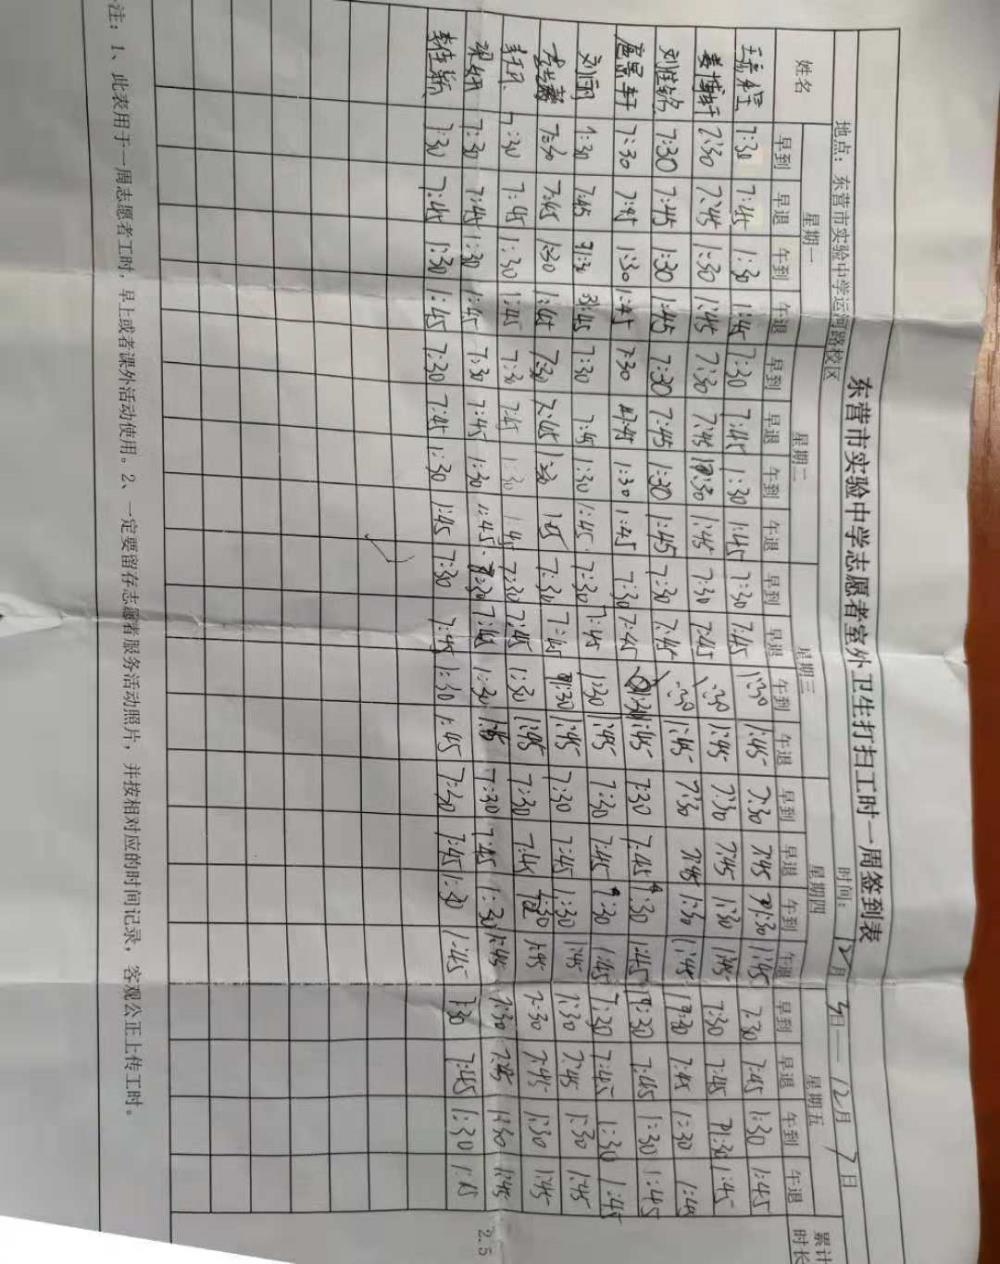 东营市实验中学志愿者室外卫生打扫工时一周签到表
地点：东营市实验中学运河路校区 时间：12月3日—12月7日
姓名 星期一 星期二 星期三 星期四 星期五 累计时长
早到 早退 午到 午退 早到 早退 午到 午退 早到 早退 午到 午退 早到 早退 午到 午退 早到 早退 午到 午退
7:30 7:45 1:30 1:45 7:30 7:45 1:30 1:45 7:30 7:45 1:30 1:45 7:30 7:45 1:30 1:45 7:30 7:45 1:30 1:45
姜博轩 7:30 7:45 1:30 1:45 7:30 7:45 1:30 1:45 7:30 7:45 1:30 1:45 7:30 7:45 1:30 1:45 7:30 7:45 1:30 1:45
刘佳铭 7:30 7:45 1:30 1:45 7:30 7:45 1:30 1:45 7:30 7:45 1:30 1:45 7:30 7:45 1:30 1:45 7:30 7:45 1:30 1:45
7:30 7:45 1:30 1:45 7:30 7:45 1:30 1:45 7:30 7:45 1:30 1:45 7:30 7:45 1:30 1:45 7:30 7:45 1:30 1:45
刘丽 7:30 7:45 1:30 1:45 7:30 7:45 1:30 1:45 7:30 7:45 1:30 1:45 7:30 7:45 1:30 1:45 7:30 7:45 1:30 1:45
7:30 7:45 1:30 1:45 7:30 7:45 1:30 1:45 7:30 7:45 1:30 1:45 7:30 7:45 1:30 1:45 7:30 7:45 1:30 1:45
7:30 7:45 1:30 1:45 7:30 7:45 1:30 1:45 7:30 7:45 1:30 1:45 7:30 7:45 1:30 1:45 7:30 7:45 1:30 1:45
梁妍 7:30 7:45 1:30 1:45 7:30 7:45 1:30 1:45 7:30 7:45 1:30 1:45 7:30 7:45 1:30 1:45 7:30 7:45 1:30 1:45
李佳新 7:30 7:45 1:30 1:45 7:30 7:45 1:30 1:45 7:30 7:45 1:30 1:45 7:30 7:45 1:30 1:45 7:30 7:45 1:30 1:45 2.5
注：1、此表用于一周志愿者工时，早上或者课外活动使用。2、一定要留存志愿者服务活动照片，并按相对应的时间记录，客观公正上传工时。